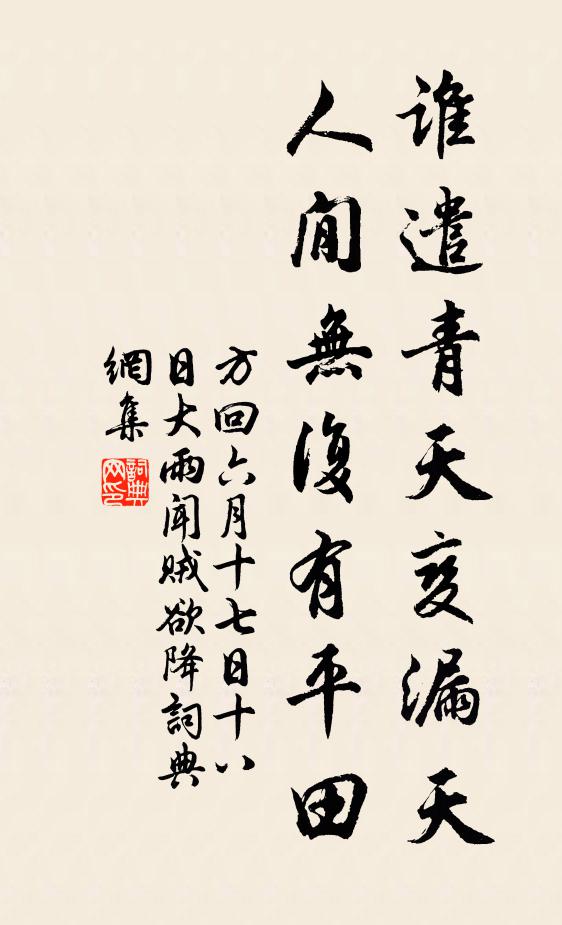 谁遣青天变漏天
人間無復有平田
方回六月十七日十八
日大雨闻贼欲降詞典
網集
詞典网印